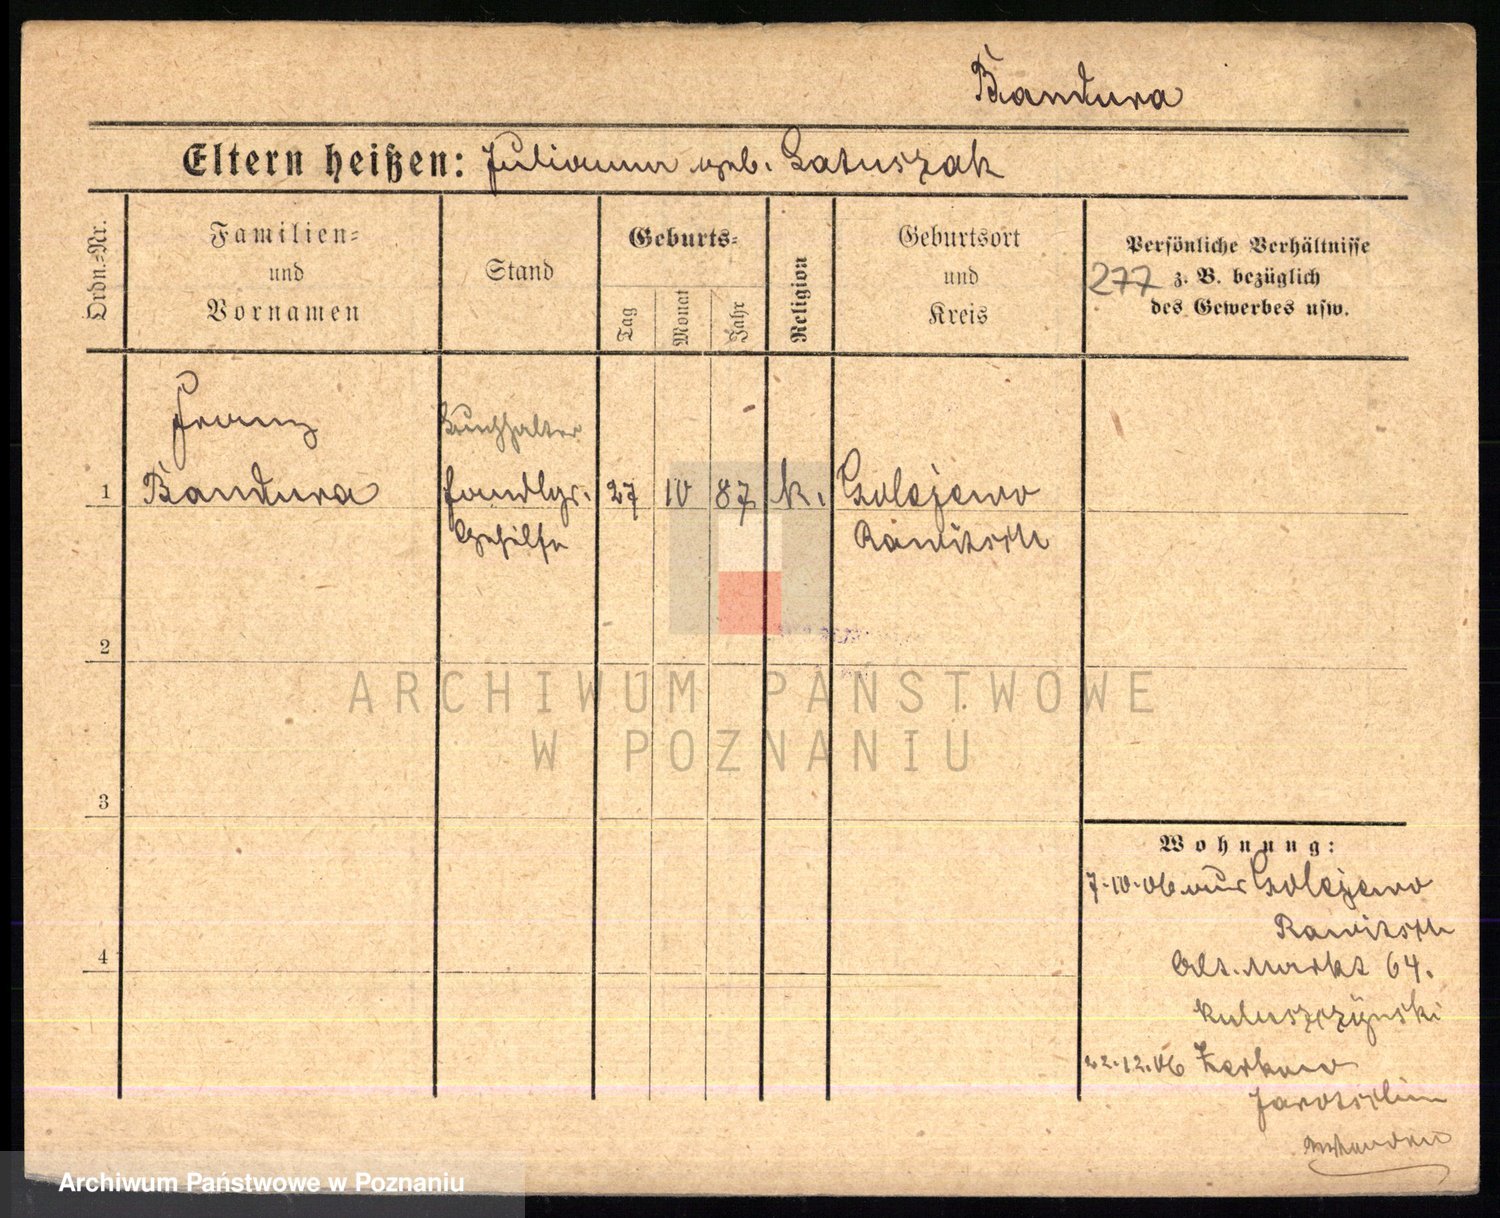 Bandura
Eltern heißen: Julianna geb. Latuszak
Ordn.=Nr.
Familien=
und
Vornamen
Stand
Geburts=
Tag
Monat
Jahr
Religion
Geburtsort
und
Kreis
Persönliche Verhältnisse
277 z. B. bezüglich
des Gewerbes usw.
Franz
Buchhalter
1 Bandura Handlgs. 27 10 87 k. Golejewo
Gehilfe Rawitsch
2
ARCHIWUM PAŃSTWOWE
W POZNANIU
3
Wohnung:
7.10.06 aus Golejewo
Rawitsch
4
Alt. Markt 64.
22.12.06 Zerkow
Jarotschin
Archiwum Państwowe w Poznaniu